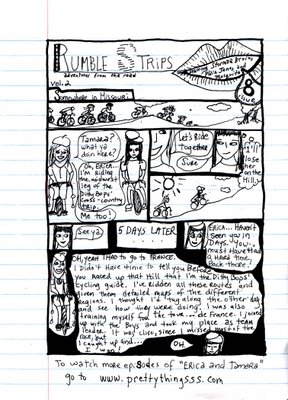 RUMBLE STRIPS
adventures from the road
vol. 2
Somewhere in Missouri
8
Tamara?
what ya
doin here?
Oh, Erica,
I'm riding
the midwest
leg of the
Dirty Bops'
cross-country
trip.
Me too!
Let's Ride
together
Sure
I'll
lose
her
on the
Hill.
See ya
5 DAYS LATER
Erica... Haven't
seen you in
Days. you
must Have Had
a Hard time
Back there
Oh, yeah I HAD to go to FRANCE.
I Didn't Have time to tell you Before
you Raced up that Hill that I'm the Dirty Bops'
cycling guide. I've Ridden all these Routes and
given them detailed maps of the different
regions. I thought I'd tag along the other day
and see how they were doing. I was also
training myself for the tour... de France. I joined
up with the Boys and took my place as team
leader. It was close, since I missed some of the
race, but
I caught up and...
I won
OH
To watch more episodes of "Erica and Tamara"
go to www.prettythingsss.com